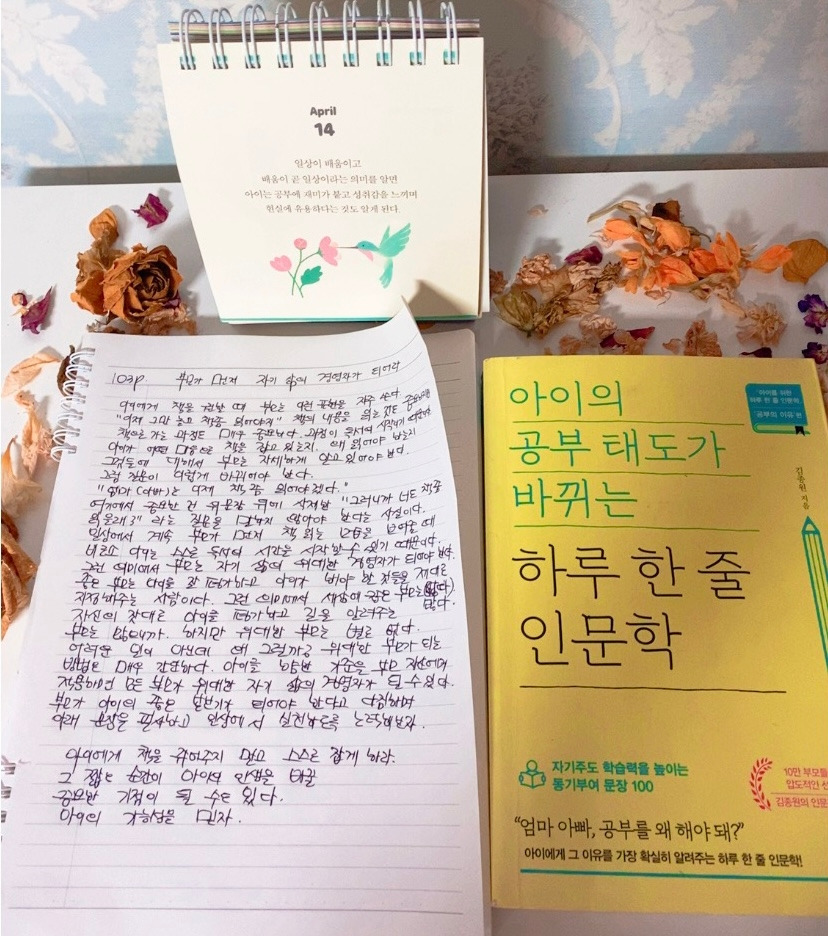 April
14
일상이 배움이고
배움이 곧 일상이라는 의미를 알면
아이는 공부에 재미가 붙고 성취감을 느끼며
현실에 유용하다는 것도 알게 된다.
103p. 부모가 먼저 자기 삶의 경영자가 되어라
아이에게 책을 권할 때 부모는 이런 표현을 자주 쓴다.
"이제 그만 놀고 책 좀 읽어야지" 책의 내용을 읽는 것도 중요하지만
책으로 가는 과정도 매우 중요하다. 과정이 독서의 시작이기 때문이다.
아이가 어떤 마음으로 책을 잡고 있는지, 왜 읽어야 하는지
그것들에 대해서 부모는 자세하게 알고 있어야 한다.
그럼 질문이 이렇게 바뀌어야 한다.
"엄마(아빠)는 이제 책 좀 읽어야겠다."
여기에서 중요한 건 위 문장 뒤에 삭제한 "그러니까 너도 책 좀
읽을래?" 라는 질문을 말하지 않아야 한다는 사실이다.
일상에서 계속 부모가 먼저 책 읽는 모습을 보여줄 때
비로소 아이는 스스로 독서의 시간을 시작할 수 있기 때문이다.
그런 의미에서 부모는 자기 삶의 위대한 경영자가 되어야 한다.
좋은 부모는 아이를 잘 평가하고 아이가 해야 할 것들을 제대로
지정해주는 사람이다. 그런 의미에서 세상에 좋은 부모는 많다.
자신의 잣대로 아이를 평가하고 길을 알려주는
부모는 많으니까. 하지만 위대한 부모는 별로 없다.
어려운 일이 아닌데 왜 그럴까? 위대한 부모가 되는
방법은 매우 간단하다. 아이를 향한 기준을 부모 자신에게
적용하면 모든 부모가 위대한 자기 삶의 경영자가 될 수 있다.
부모가 아이의 좋은 본보기가 되어야 한다고 다짐하며
아래 문장을 필사하고 일상에서 실천하도록 노력해보자.
아이에게 책을 쥐어주지 말고 스스로 잡게 하라.
그 짧은 순간이 아이의 인생을 바꿀
중요한 기점이 될 수도 있다.
아이의 가능성을 믿자.
아이의
공부 태도가
바뀌는
하루 한 줄
인문학
아이를 위한
하루 한 줄 인문학
'공부의 이유'편
김종원 지음
자기주도 학습력을 높이는
동기부여 문장 100
10만 부모들
압도적인 선
김종원의 인문
"엄마 아빠, 공부를 왜 해야 돼?"
아이에게 그 이유를 가장 확실히 알려주는 하루 한 줄 인문학!